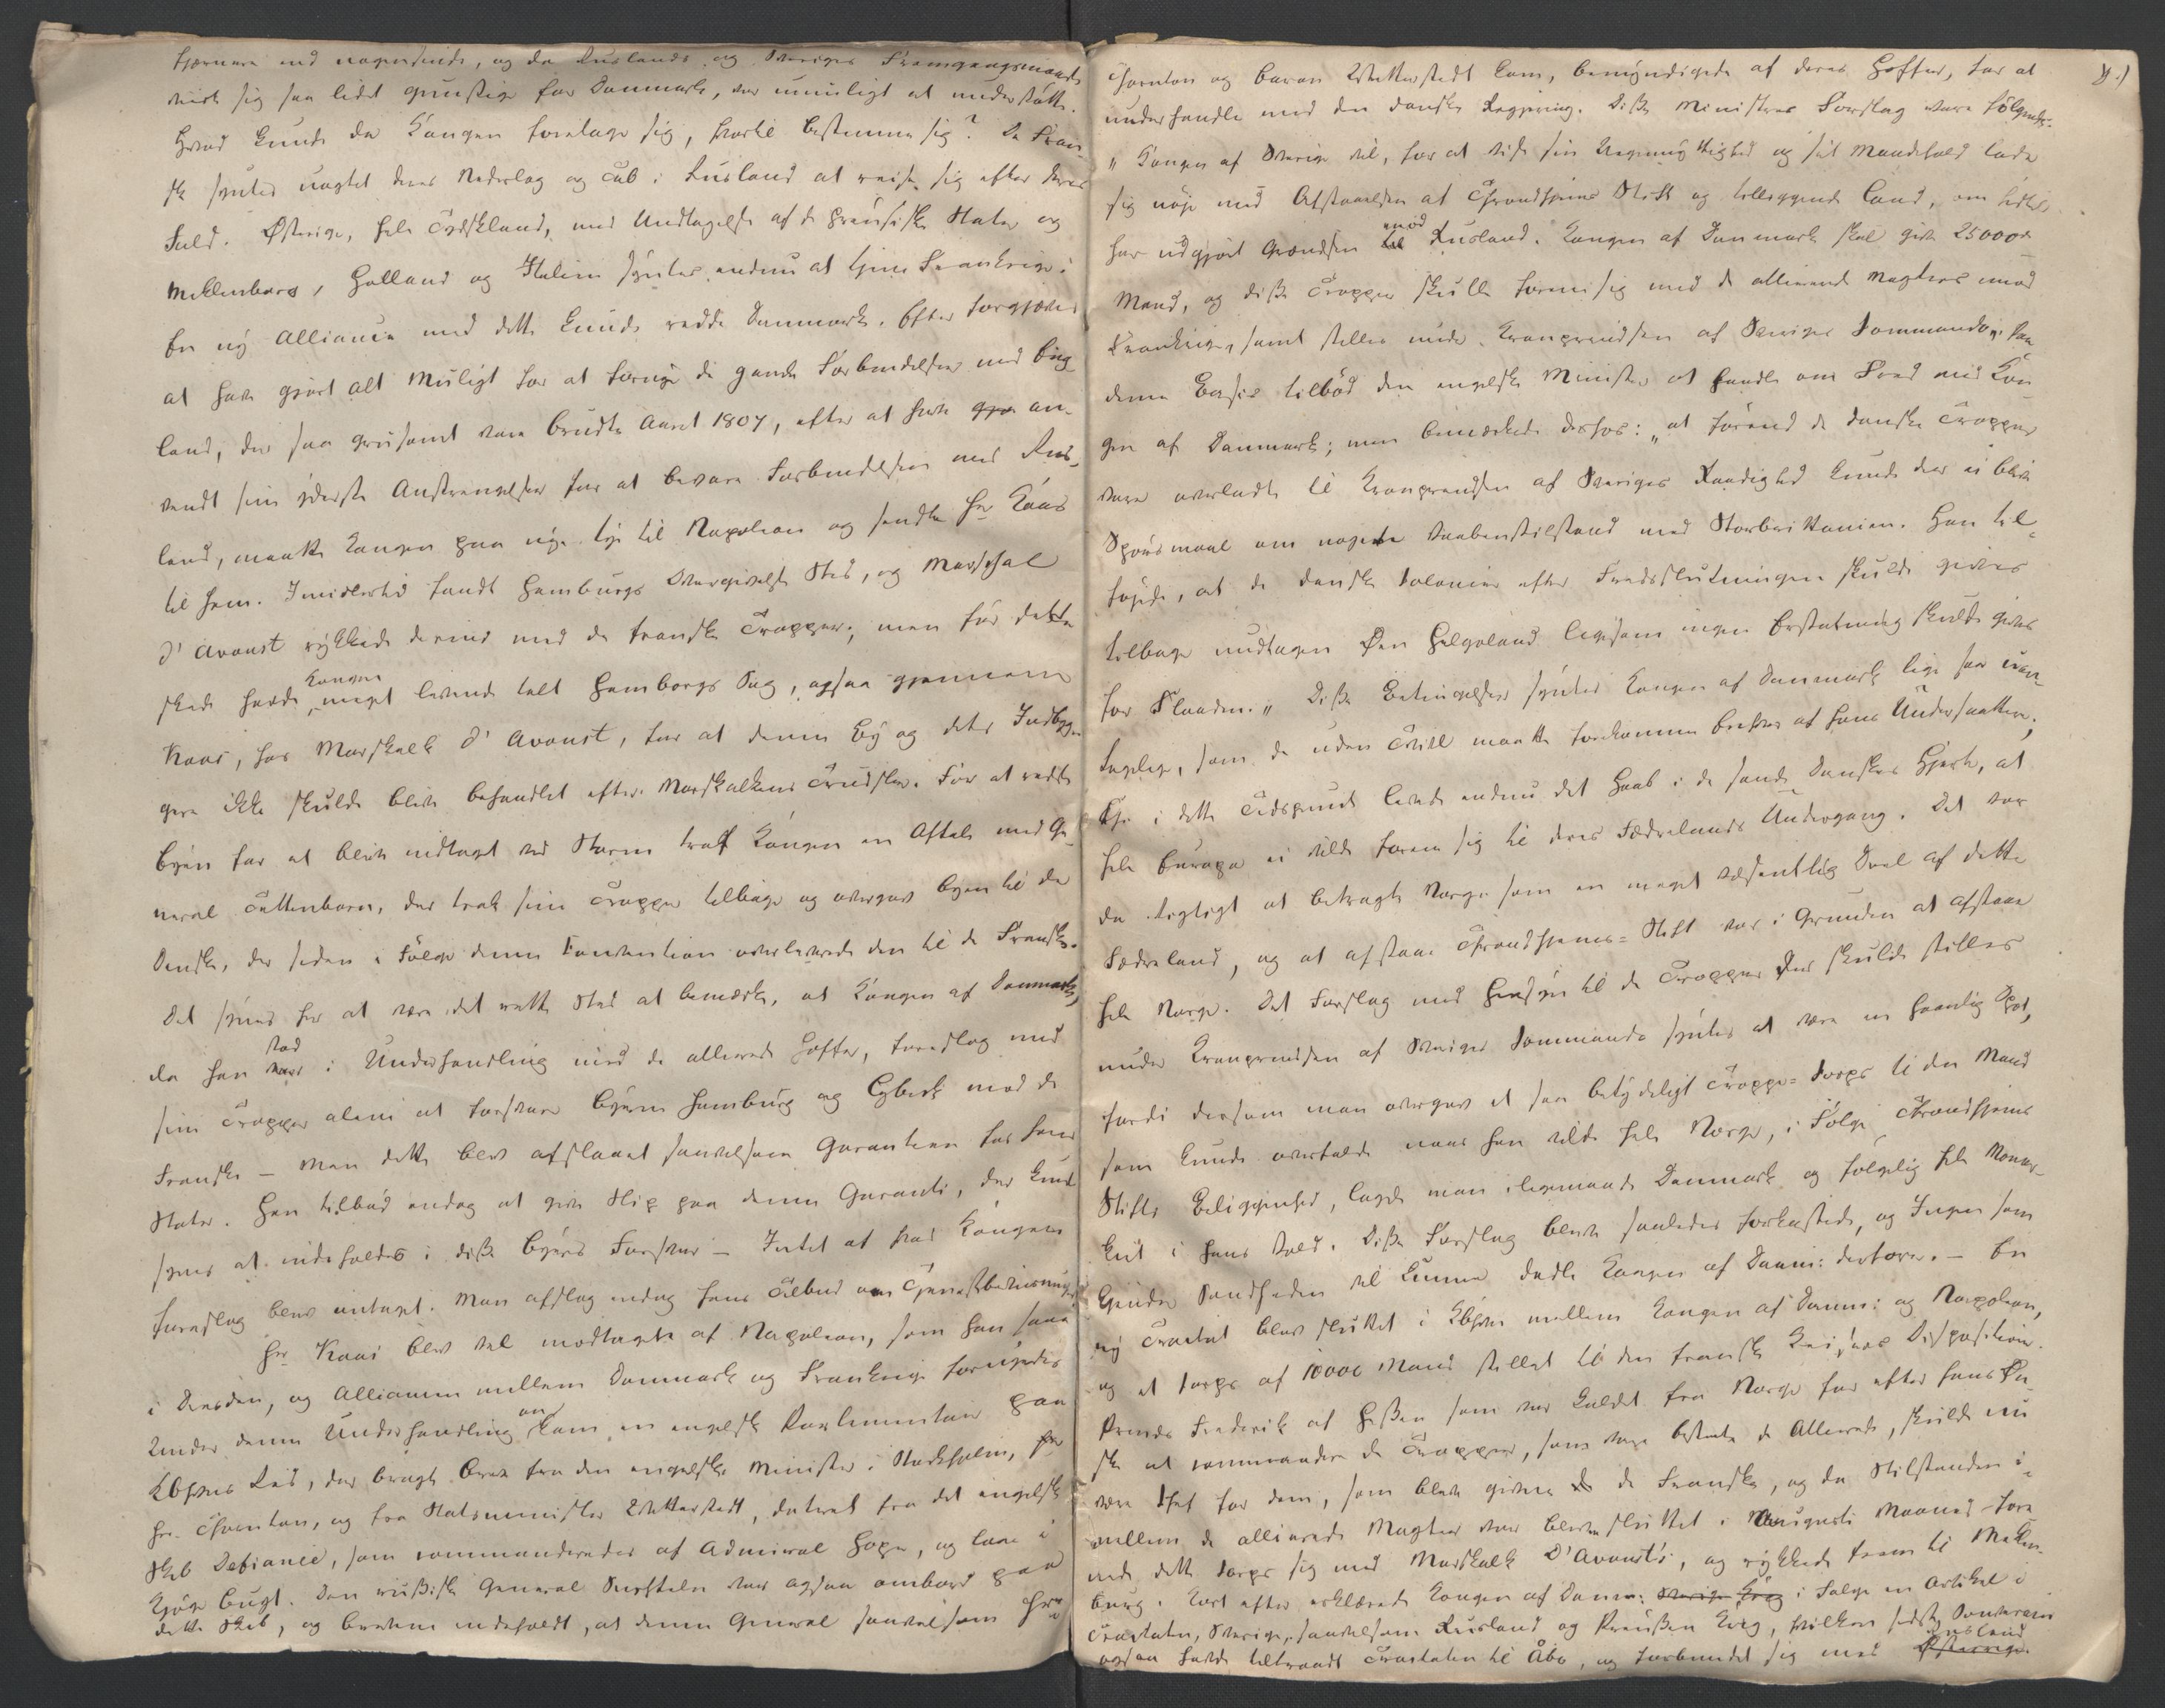 fjernere end nogensinde, og da Ruslands og Sveriges Fremgangsmaade
viste sig saa lidet gunstige for Danmark, var umuligt at understøtte.
Hvad kunde da Kongen foretage sig, hvortil bestemme sig? De Fran-
ske syntes uagtet deres Nederlag og Tab i Rusland at reise sig efter deres
Fald. Østerige, hele Tydskland, med Undtagelse af de Preusiske Stater og
Meklenborg, Holland og Italien syntes endnu at tjene Frankrige;
En ny Alliance med dette kunde redde Danmark. Efter forgjæves
at have gjort alt muligt for at fornye de gamle Forbindelser med Eng-
land, der saa grusomt vare brudte Aaret 1807, efter at have an-
vendt sine yderste Anstrengelser for at bevare Forbindelsen med Rus-
land, maatte Kongen paa nye tye til Napoleon og sendte Hr Kaas
til ham. Imidlertid fandt Hamburgs Overgivelse Sted, og Marschal
d'Avoust rykkede derind med de franske Tropper; men før dette
skede havde Kongen meget levende talt Hamborgs Sag, ogsaa gjennem
Kaas, hos Marskalk d'Avoust, for at denne By og dets Indbyg-
gere ikke skulde blive behandlet efter Marskalkens Trudsler. For at redde
Byen for at blive indtaget ved Storm traf Kongen en Aftale med Ge-
neral Tettenborn, der trak sine Tropper tilbage og overgav Byen til de
Danske, der siden i Følge denne Convention overleverede den til de Franske.
Det synes her at være det rette Sted at bemærke, at Kongen af Danmark,
da han stod i Underhandling med de allierede Hoffer, foreslog med
sine Tropper alene at forsvare Byerne Hamburg og Lybek mod de
Franske – Men dette blev afslaaet saavelsom Garantien for hans
Stater. Han tilbød endog at give Slip paa denne Garanti, der kund
synes at indeholdes i disse Byers Forsvar – Intet af hvad Kongen
foreslog blev antaget. Man afslog endog hans Tilbud om Tjenestbeviisninger.
Hr Kaas blev vel modtaget af Napoleon, som han saae
i Dresden, og Alliancen mellem Danmark og Frankrige fornyedes
Under denne Underhandling ankom en engelsk Parlementair paa
Kbhvns Red, der bragte Breve fra den engelske Minister i Stockholm, Hr
Hr. Thornton, og fra Statsminister Wetterstedt, dateret fra det engelske
Skib Defiance, som commanderedes af Admiral Hope, og laae i
Kjøge Bugt. Den russiske General Suchtelen var ogsaa ombord paa
dette Skib, og Brevene indeholdt, at denne General saavelsom Hrr
9.)
Thornton og Baron Wetterstedt kom, bemyndigede af deres Hoffer, for at
underhandle med den danske Regjering. Disse Ministres Forslag vare følgende:
"Kongen af Sverige vil, for at vise sin Uegennyttighed og sit Maadehold lade
sig nøje med Afstaaelsen af Throndhjems Stift og tilliggende Land, om
har udgjort Grændsen imod Rusland. Kongen af Danmark skal give 25000
Mand, og disse Tropper skulle forene sig med de allierende Magters imod
Frankrige, samt stilles under Kronprindsen af Sveriges Commando; paa
denne Basis tilbød den engelske Minister at handle om Fred med Kon-
gen af Danmark; men bemærkede derhos: "at førend de danske Tropper
vare overladte til Kronprindsen af Sveriges Raadighed kunde der ei blive
Spørsmaal om nogen Vaabenstilstand med Storbrittanien. Han til-
føjede, at de danske Colonier efter Fredsslutningen skulde gives
tilbage undtagen Øen Helgoland ligesom ingen Erstatning skulde gives
for Flaaden." Disse Betingelser syntes Kongen af Danmark lige saa uan-
tagelige, som de uden Tvivl maatte forekomme Enhver af hans Undersaatter;
Thi i dette Tidspunct levede endnu det Haab i de sande Danskes Hjerte, at
hele Europa ei vilde forene sig til deres Fædrelands Undergang. Det var
da vigtigt at betragte Norge som en meget væsentlig Deel af dette
Fædreland, og at afstaae Throndhjems-Stift var i Grunden at afstaae
hele Norge. Det Forslag med Hensyn til de Tropper der skulde stilles
under Kronprindsen af Sveriges Commando syntes at være en haanlig Spot,
fordi dersom man overgav et saa betydeligt Troppe-Corps til den Mand
som kunde overfalde naar han vilde hele Norge, i Følge Throndhjems
Stifts Beliggenhed, lagde man iligemaade Danmark og følgelig hele Monar-
kiet i hans Vold. Disse Forslag bleve saaledes forkastede, og Ingen som
kjender Sandheden vil kunne dadle Kongen af Danm: derfore. – En
ny Tractat blev sluttet i Kbhvn mellem Kongen af Danm: og Napoleon,
og et Corps af 10000 Mand stillet til den franske Keisers Disposition.
Prinds Frederik af Hessen som var kaldet fra Norge for efter hans Øn-
ske at commandere de Tropper, som vare bestemte de Allierede, skulde nu
være Chef for dem, som bleve givne de Franske, og da Stilstanden i-
mellem de allierede Magter var bleven sluttet i Augusti Maaned – fore-
nede dette Corps sig med Marskalk D'Avoust's, og rykkede frem til Meklen-
burg. Kort efter erklærede Kongen af Danm: i Følge en Artikel i
Tractaten, Sverige, saavelsom Rusland og Preussen Krig, hvilken sidste Souverain
ogsaa havde tiltraadt Tractaten til Åbo, og forbundet sig med Rusland